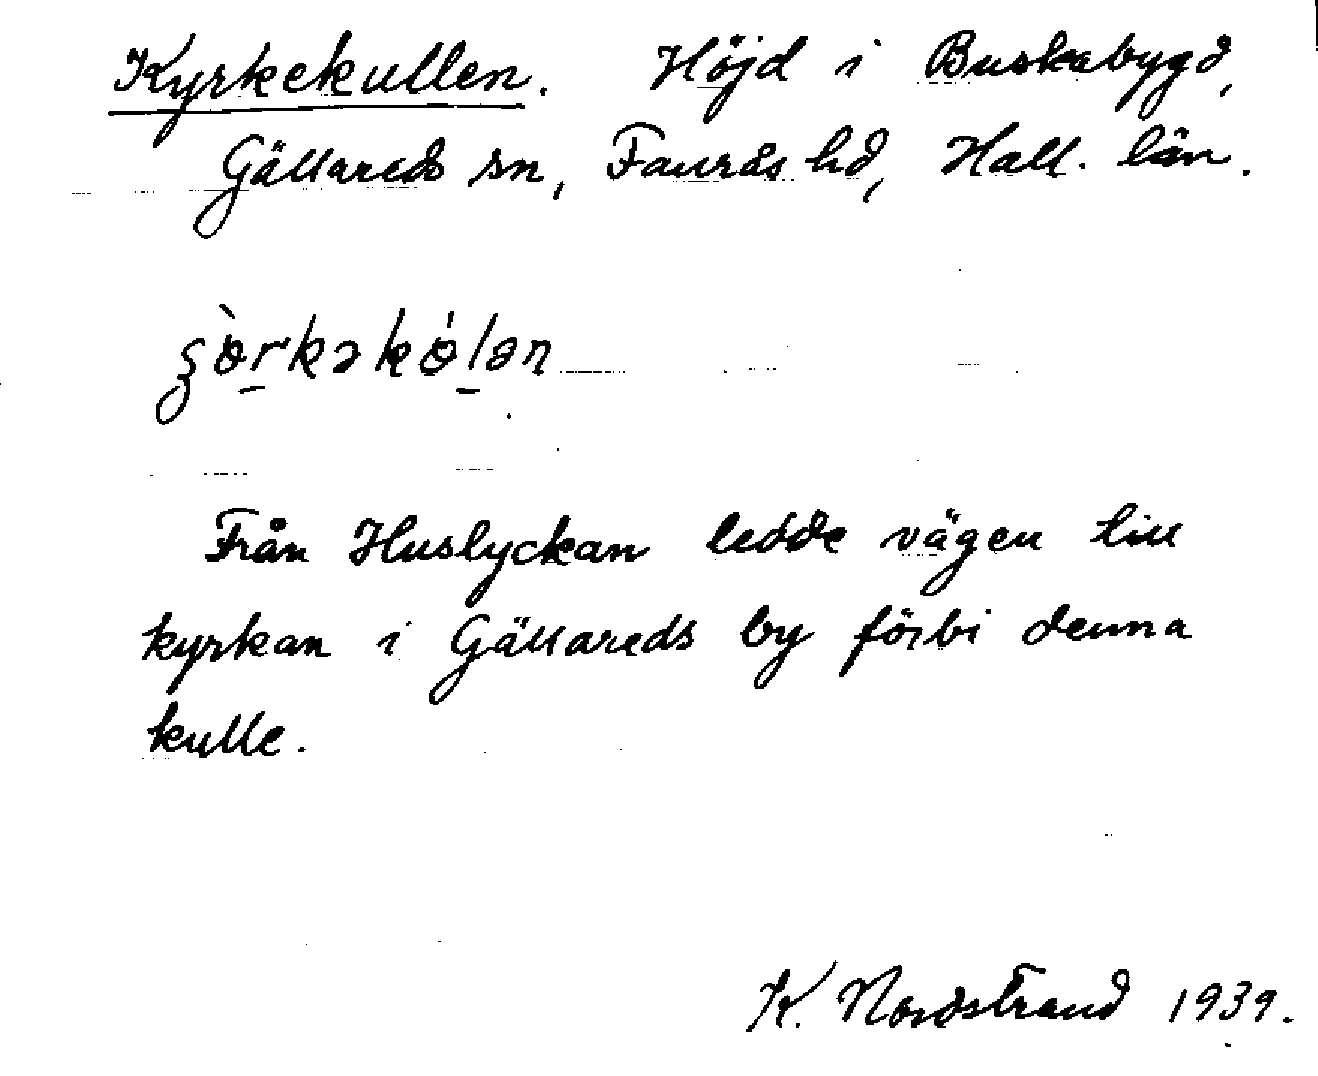 Kyrkekullen. Höjd i Buskabygd,
Gällareds sn, Faurås hd, Hall. län.
Från Huslyckan ledde vägen till
kyrkan i Gällareds by förbi denna
kulle.
K. Nordstrand 1939.